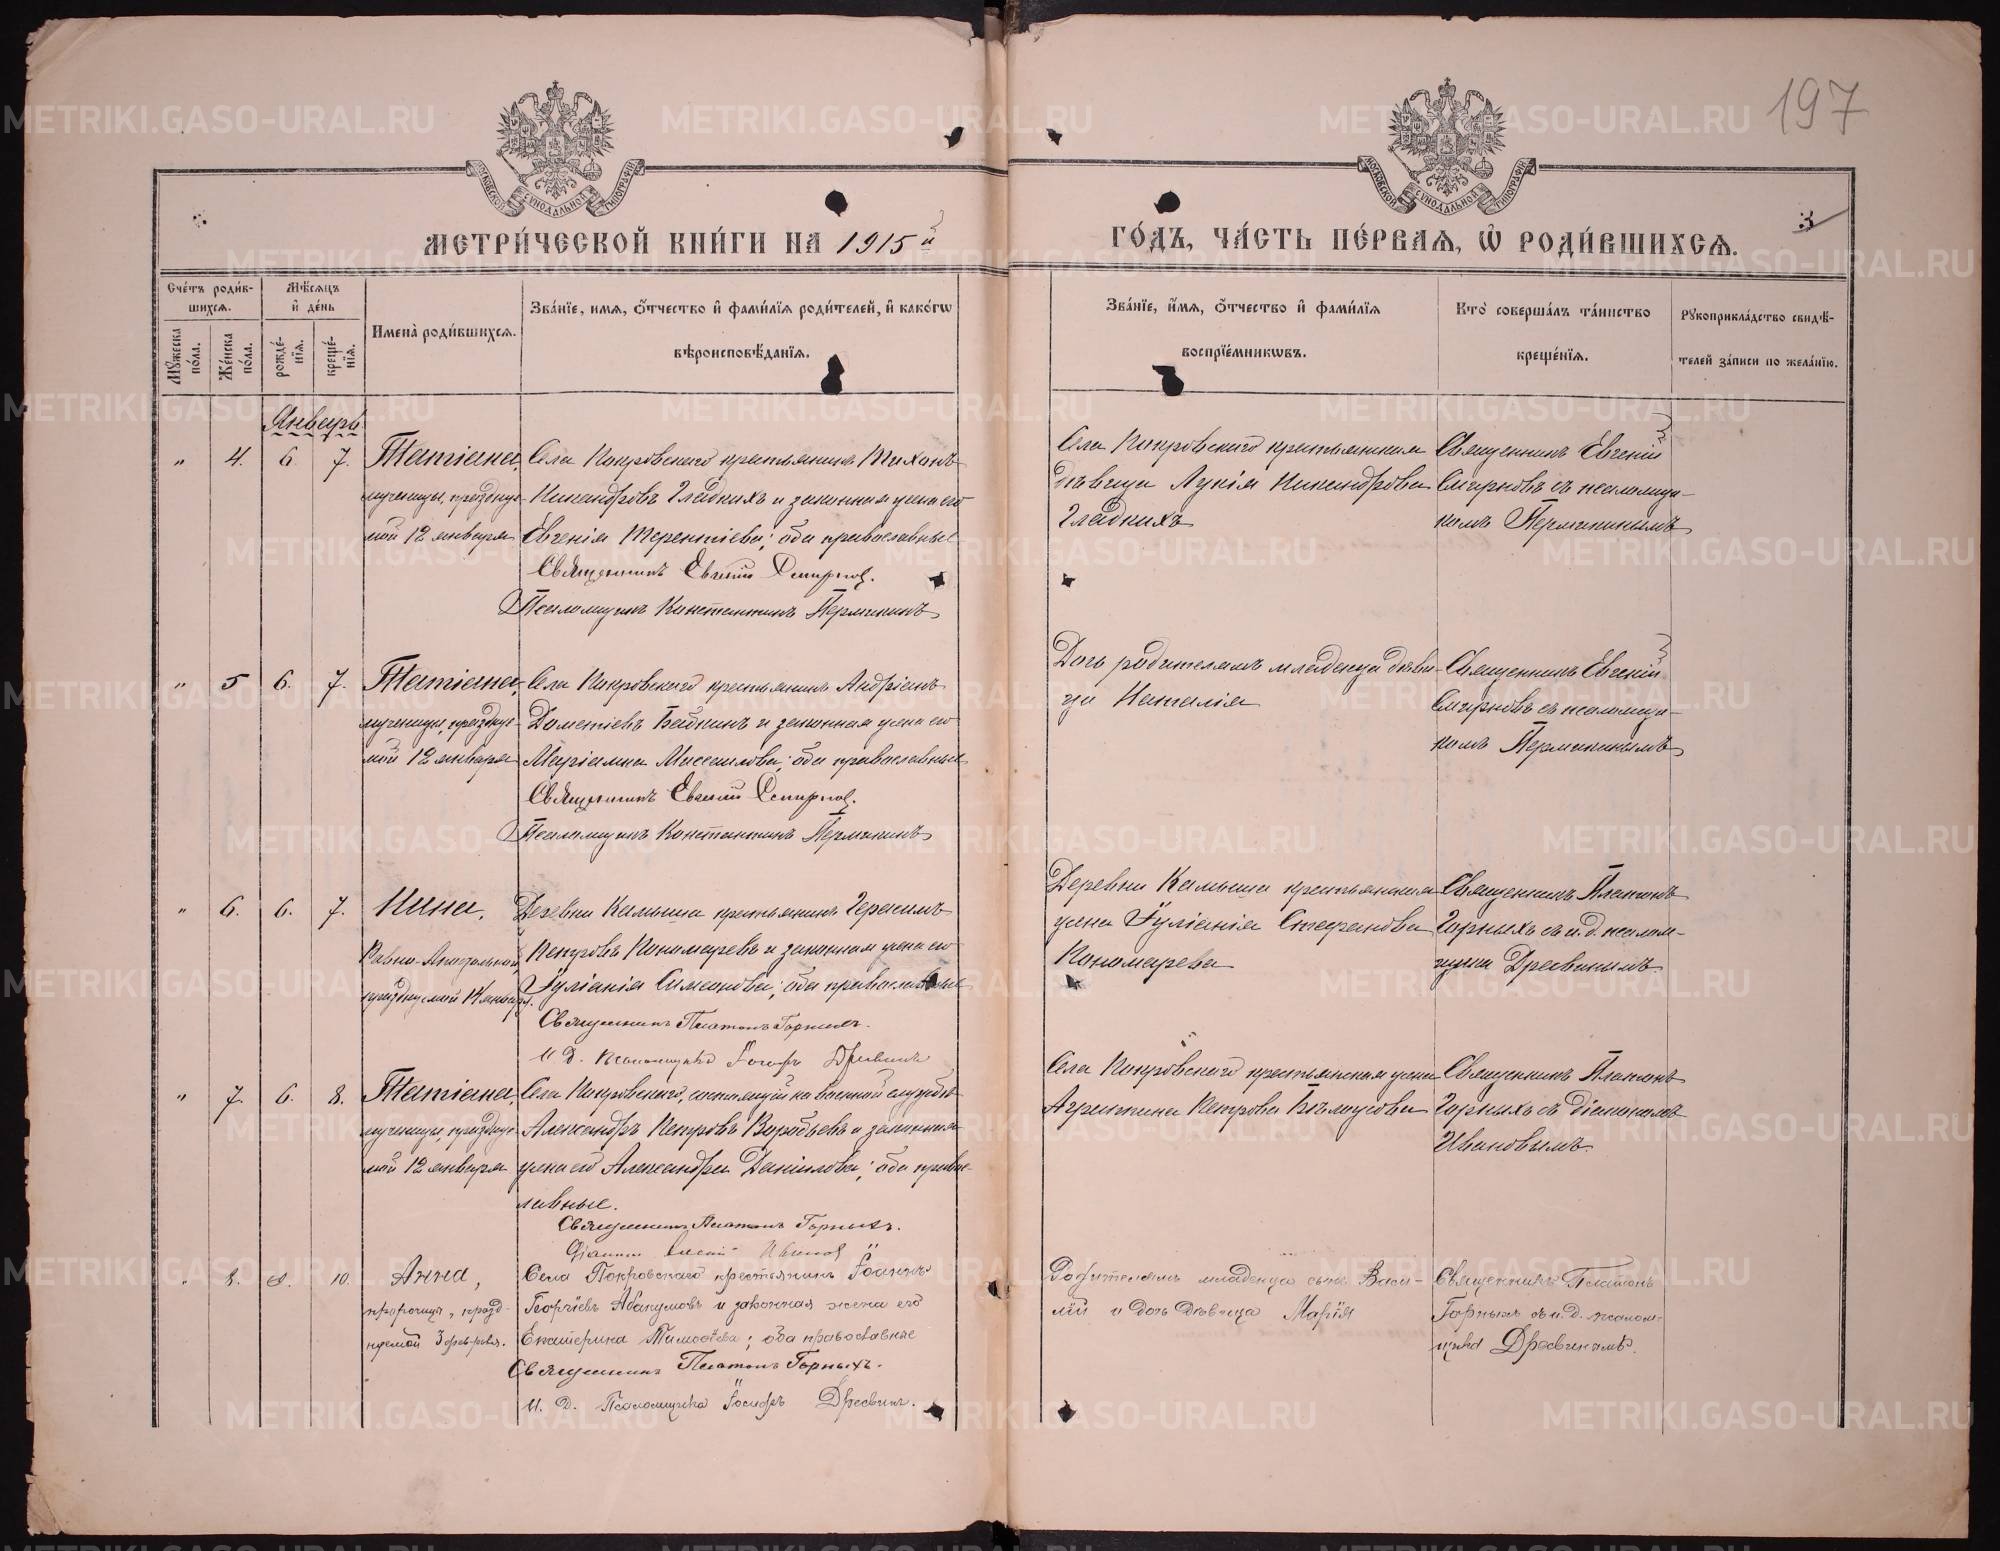 197
МОСКОВСКОЙ СѴНОДАЛЬНОЙ ТИПОГРАФІИ
МОСКОВСКОЙ СѴНОДАЛЬНОЙ ТИПОГРАФІИ
3
МЕТРИ́ЧЕСКОЙ КНИ́ГИ НА 1915й
ГО́ДЪ, ЧА́СТЬ ПЕ́РВАѦ, Ѡ҆ РОДИ́ВШИХСѦ.
Сче́тъ роди́в-
шихсѧ.
Мѣ́сѧцъ
и҆ де́нь
Мꙋ́жеска по́ла.
Же́нска по́ла.
рожде́-нїѧ.
креще́-нїѧ.
Имена̀ роди́вшихсѧ.
Зва́нїе, и҆мѧ, ѻ҆́тчество и҆ фами́лїѧ роди́телей, и҆ како́гѡ
вѣроисповѣ́данїѧ.
Зва́нїе, и҆́мѧ, ѻ҆́тчество и҆ фами́лїѧ
воспрїе́мникѡвъ.
Кто̀ соверша́лъ та́инство
креще́нїѧ.
Рꙋкоприкла́дство свидѣ́-
телей за́писи по жела́нїю.
Январь
" 4. 6. 7. Татіана,
мученицы, праздну-
мой 12 января
Села Покровскаго крестьянинъ Тихонъ
Никандровъ Гладкихъ и законная жена его
Евгенія Терентіева; оба православные
Священникъ Евгеній Смирновъ.
Псаломщикъ Константинъ Пермикинъ
Села Покровскаго крестьянская
дѣвица Лукія Никандрова
Гладкихъ
Священникъ Евгеній
Смирновъ съ псаломщи-
комъ Пермикинымъ
" 5 6. 7. Татіана,
мученицы, праздну-
мой 12 января
Села Покровскаго крестьянинъ Андріанъ
Дометіевъ Бабкинъ и законная жена его
Маріамна Мисаилова; оба православные
Священникъ Евгеній Смирновъ.
Псаломщикъ Константинъ Пермикинъ
Дочь родителямъ младенца дѣви-
ца Наталія
Священникъ Евгеній
Смирновъ съ псаломщи-
комъ Пермикинымъ
" 6. 6. 7. Нина,
Равно-Апостольной,
празднуемой 14 января.
Деревни Камыша крестьянинъ Герасимъ
Петровъ Пономаревъ и законная жена его
Іуліанія Симеонова; оба православные
Священникъ Платонъ Горныхъ.
И. д. псаломщика Іосифъ Дресвинъ
Деревни Камыша крестьянская
жена Іуліанія Стефанова
Пономарева
Священникъ Платонъ
Горныхъ съ и. д. псалом-
щика Дресвинымъ
" 7. 6. 8. Татіана,
мученицы, праздну-
мой 12 января
Села Покровскаго, состоящій на военной службѣ
Александръ Петровъ Воробьевъ и законная
жена его Александра Даніилова; оба право-
славные.
Священникъ Платонъ Горныхъ.
Діаконъ Ивановъ
Села Покровскаго крестьянская жена
Агриппина Петрова Бѣлоусова
Священникъ Платонъ
Горныхъ съ діакономъ
Ивановымъ
" 8. 8. 10. Анна,
пророчицы, празд-
нуемой 3 февраля.
Села Покровскаго крестьянинъ Іоаннъ
Георгіевъ Абакумовъ и законная жена его
Екатерина Тимоѳеева; оба православные
Священникъ Платонъ Горныхъ.
И. д. Псаломщика Іосифъ Дресвинъ.
Родителямъ младенца сынъ Васи-
лій и дочь дѣвица Марія
Священникъ Платонъ
Горныхъ съ и. д. псалом-
щика Дресвинымъ.
METRIKI.GASO-URAL.RU